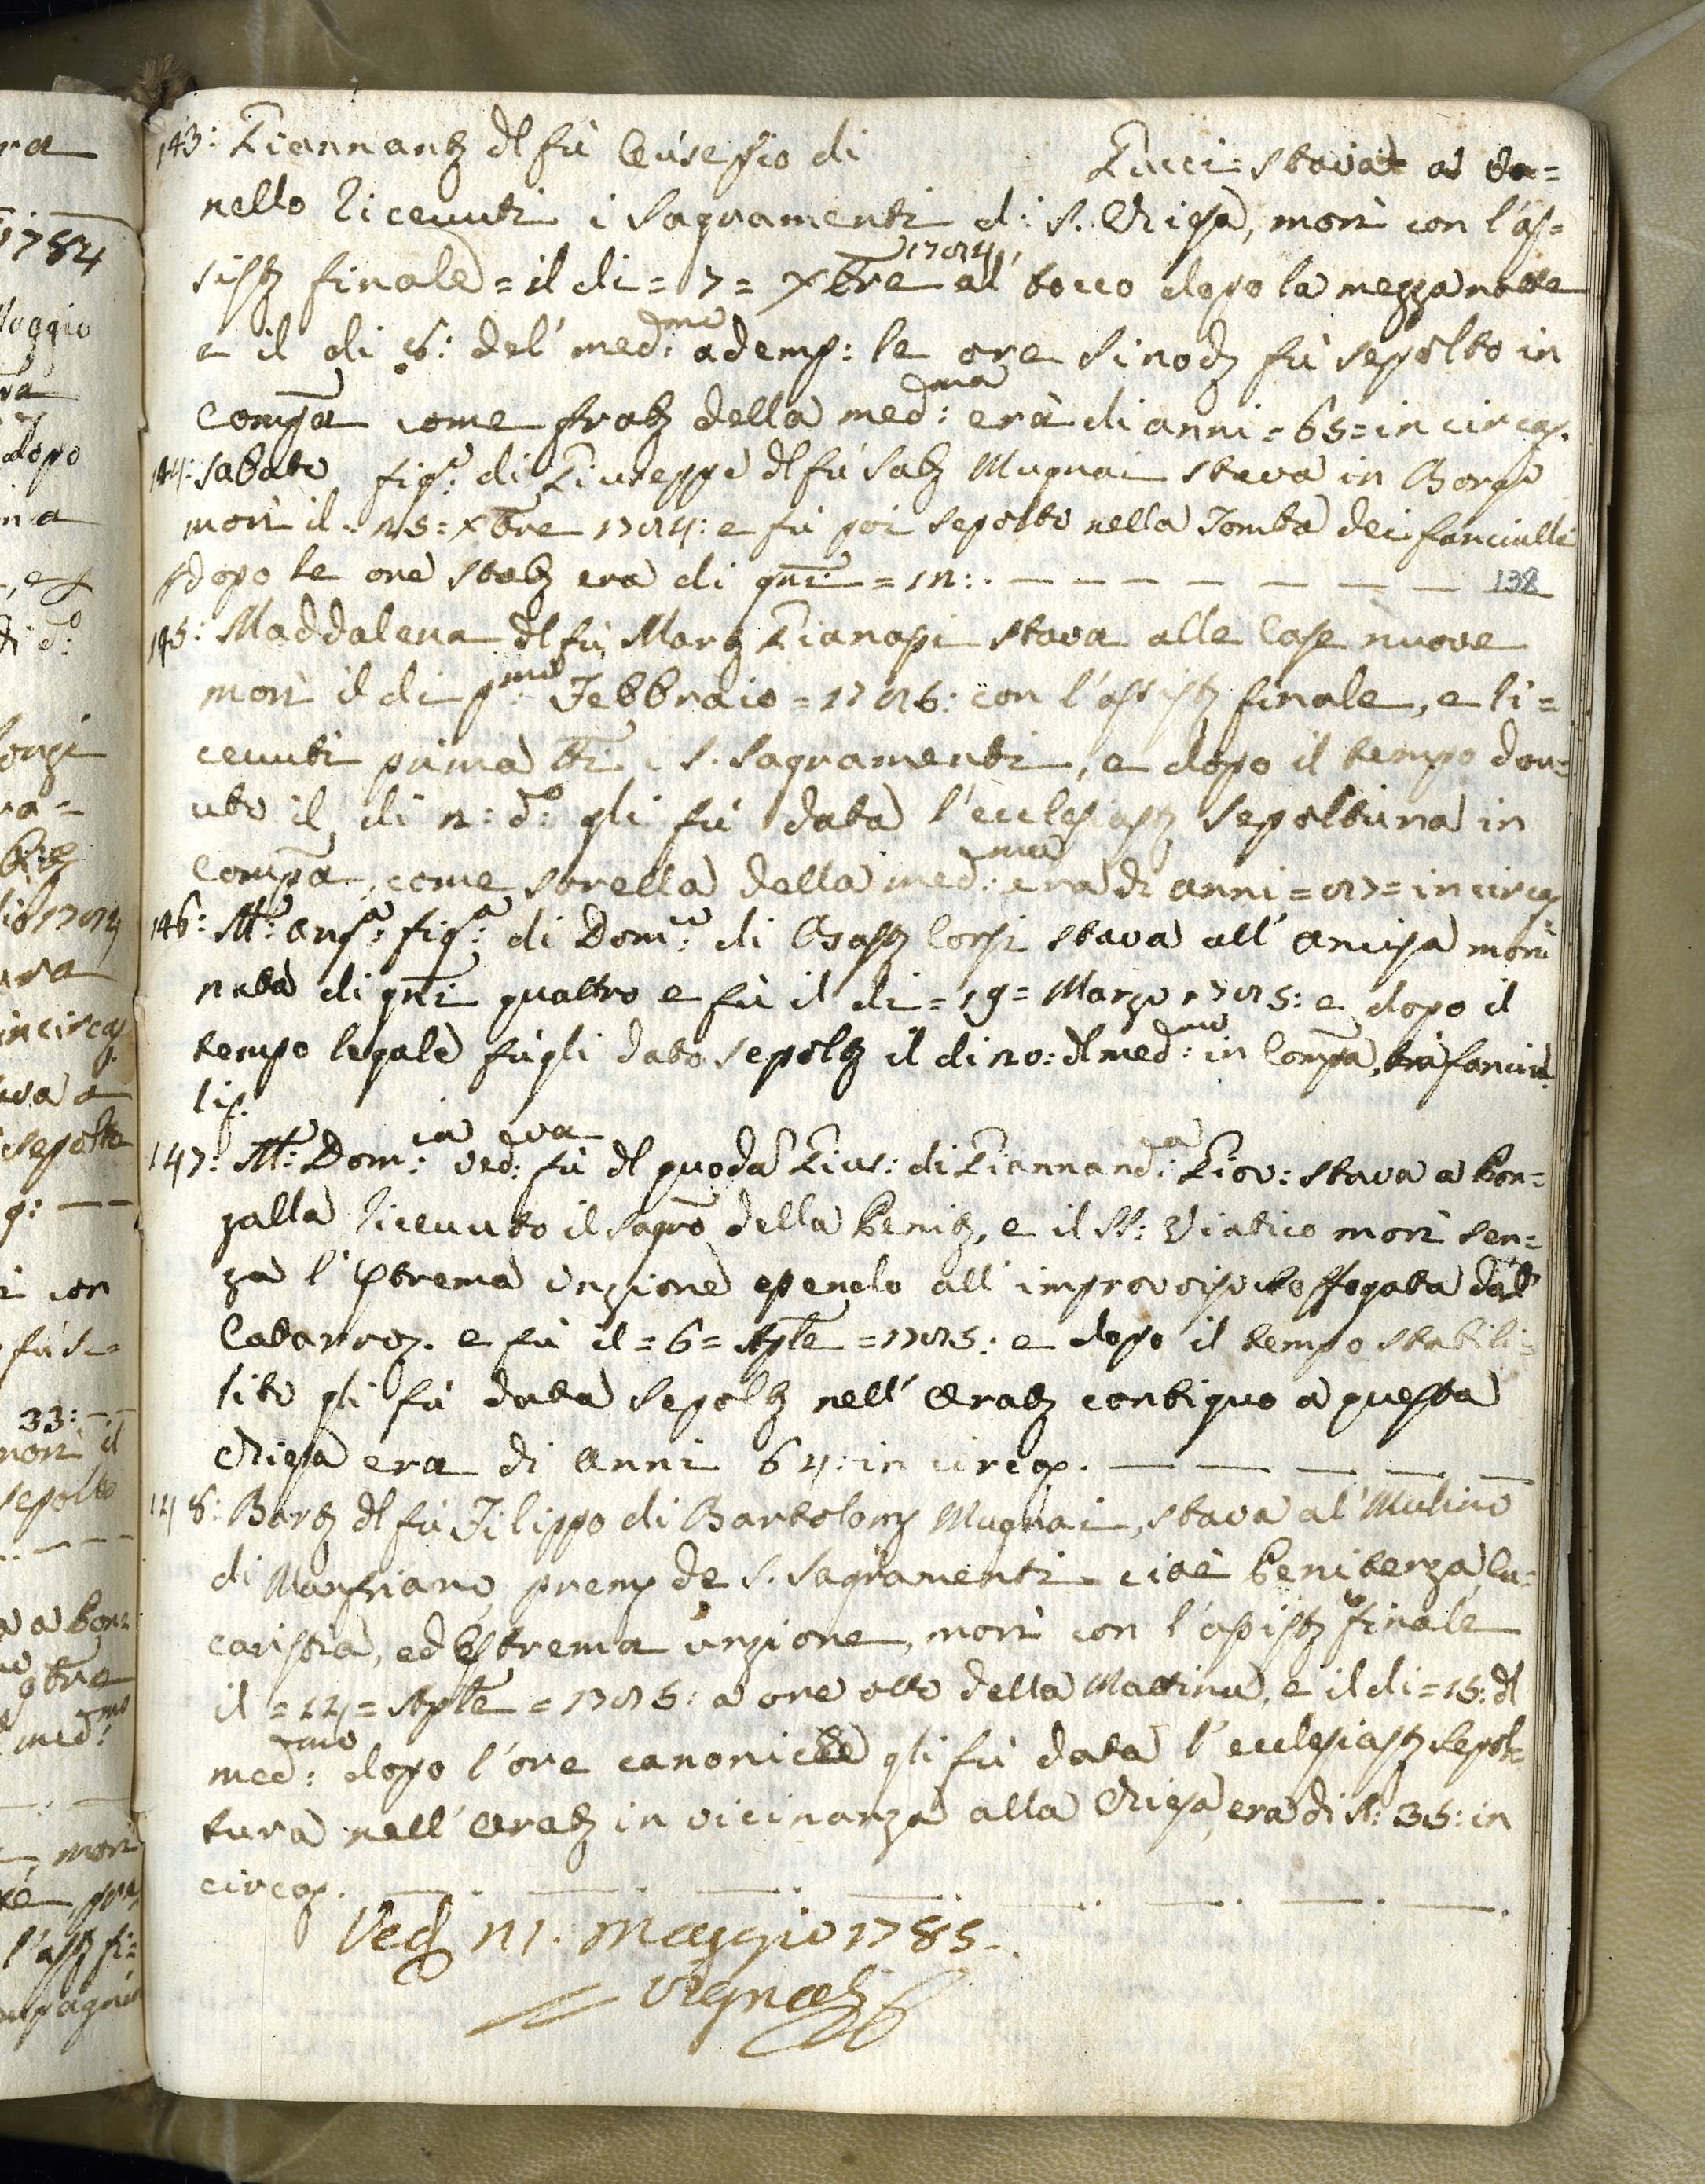 143: Giannant⁠ dl fù Eusepio di Lucci= stava a Va=
nello ricevuti i Sagramenti di S. Chiesa, morì con l'as=
sist. finale = il di = 7 = Xbre 1784, al' tocco dopo la mezza notte
e il di 8: del' med:mo ademp: le ore sinod. fù sepolto in
Compa come frat. della med:ma erà di anni = 65 = in circa.
144: Sabato fig:o di Giuseppe dl fù Sab. Mugnai stava in Borgo
morì il 25: Xbre 1784: e fù poi sepolto nella Tomba dei fanciulli
dopo le ore stab. era di gni: = 12: . — — — — — — — 138
145: Maddalena dl fù Marc. Gianassi stava alle Case nuove
morì il di p:mo Febbraio = 1785: con l'assist. finale, e ri=
cevuti prima tti i S. Sagramenti, e dopo il tempo dov=
uto il di 2: do: gli fù data l'ecclesiast. Sepoltura in
Compa, come sorella della med:ma era di anni = 87 = in circa.
146: Ma: Ang:a fig:a di Dom:co di Gasp. Corsi stava all' Ancisa morì
nata di gni quattro e fù il di = 19 = Marzo 1785: e dopo il
tempo legale fùgli dato sepolt. il di 20: dl med:mo in Compa, trà fanciul
li.
147: Ma: Dom:ca ved:ova fù dl quodam Gius: di Giannand:a Giov: stava a Bon=
zalla ricevuto il sagro della Penit. e il SS: Viatico morì sen=
za l'Estrema Unzione essendo all' improvviso soffogata dal
Catarro. e fù il = 6 = Aple = 1785: e dopo il tempo stabili=
lito gli fù data Sepolt. nell' Orat. contiguo a questa
Chiesa era di Anni 64: in circa. — — — — —
148: Bart. dl fù Filippo di Bartolom. Mugnai, stava al' Mulino
di Marsiano prem. de S. Sagramenti cioè Penitenza, Eu=
caristia, ed Estrema unzione, morì con l'assist. finale
il = 14 = Aple = 1785: a ore otto della Mattina, e il di = 15: dl
med:mo dopo l'ore canoniche gli fù data l'ecclesiast. sepol=
tura nell' Orat. in vicinanza alla Chiesa, era di A: 35: in
circa. — — — — — — — —
Ved. 21. Maggio 1785.
Vignali